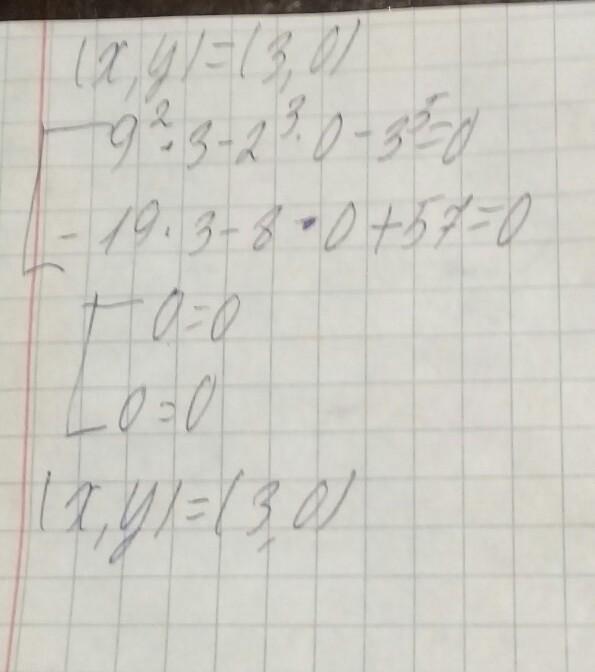 (x,y)=(3,0)
9²·3-2³·0-3⁵=0
-19·3-8·0+57=0
0=0
0=0
(x,y)=(3,0)